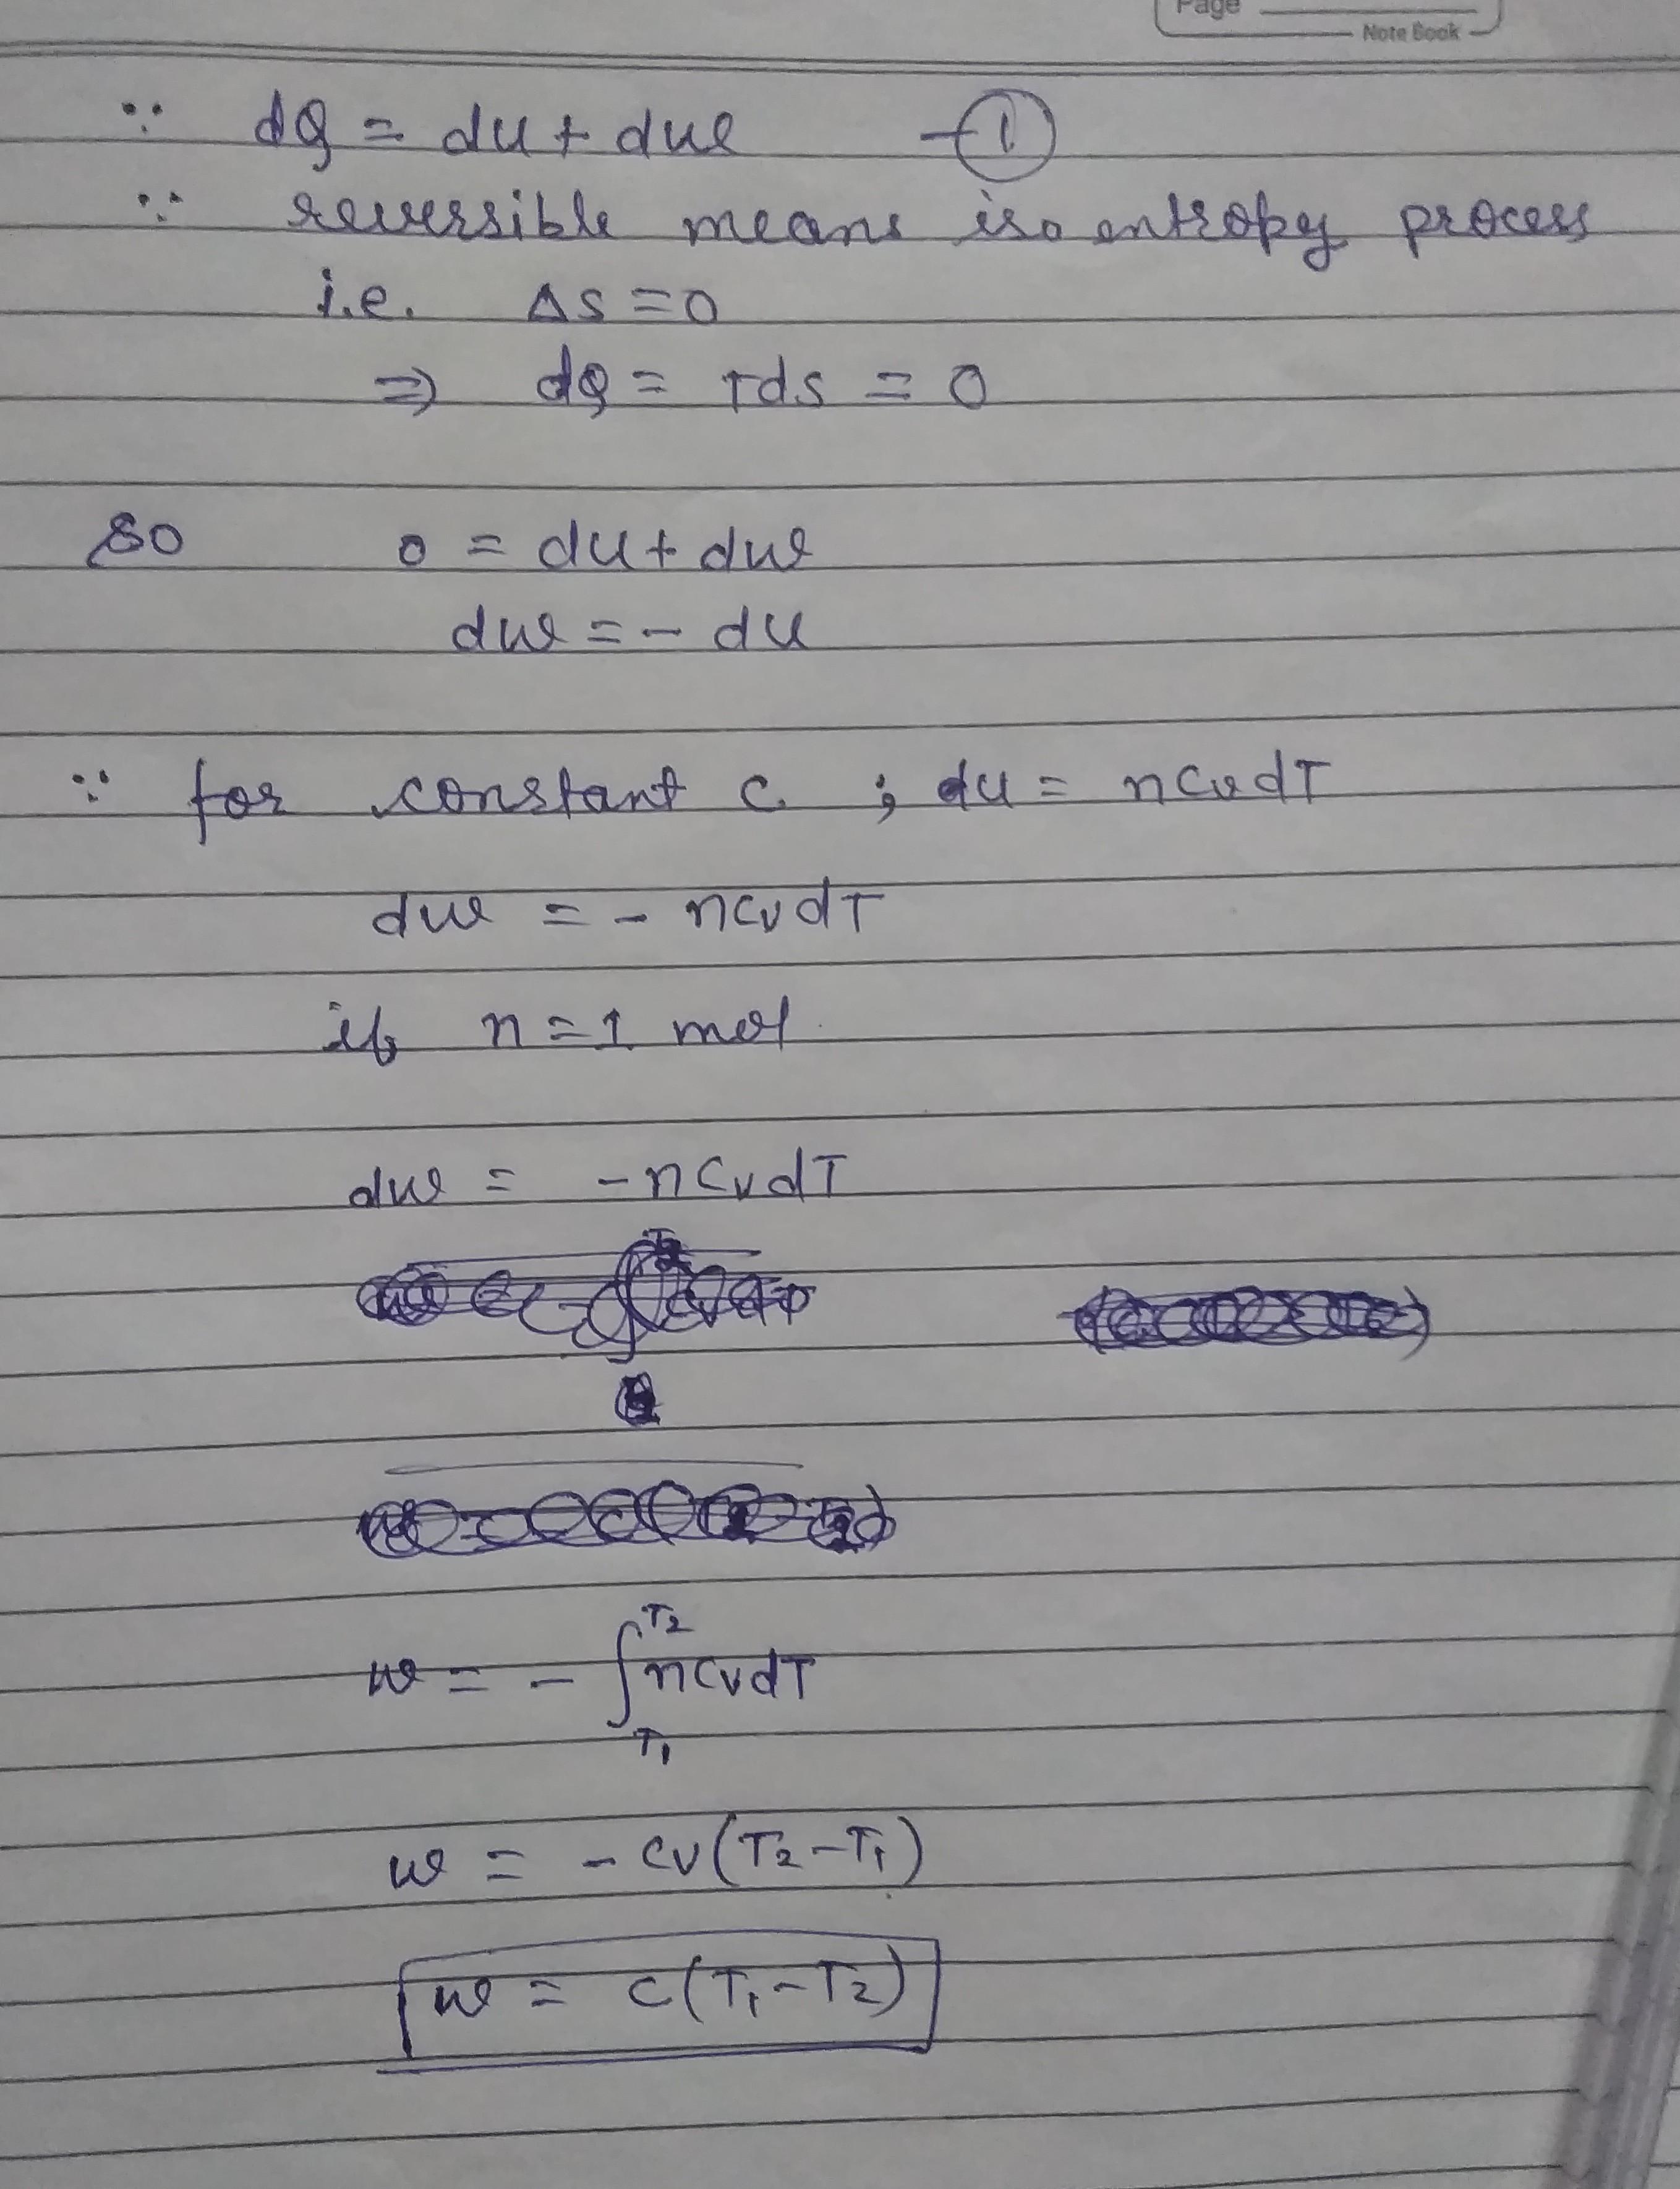 Page
Note Book
∵ dQ = du + dw —①
∵ reversible means iso entropy process
i.e. Δs = 0
⇒ dQ = Tds = 0
so 0 = du + dw
dw = - du
∵ for constant c ; du = ncvdT
dw = - ncvdT
if n = 1 mol
dw = - ncvdT
w = - ∫ ncvdT
T2
T1
w = - cv(T2-T1)
w = c(T1-T2)